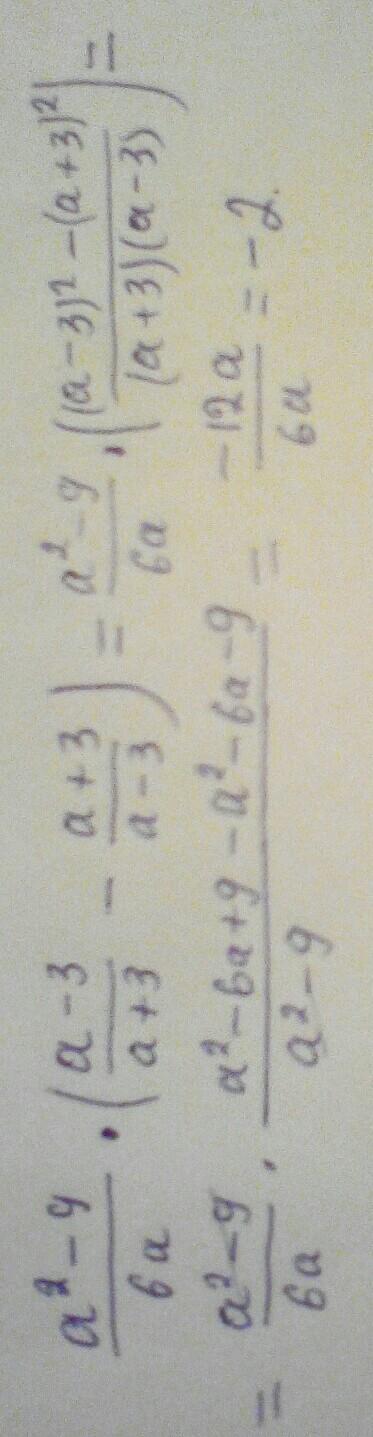 (a² - 9)/(6a) · ((a - 3)/(a + 3) - (a + 3)/(a - 3)) = (a² - 9)/(6a) · (((a - 3)² - (a + 3)²)/((a + 3)(a - 3))) =
= (a² - 9)/(6a) · (a² - 6a + 9 - a² - 6a - 9)/(a² - 9) = (-12a)/(6a) = -2.